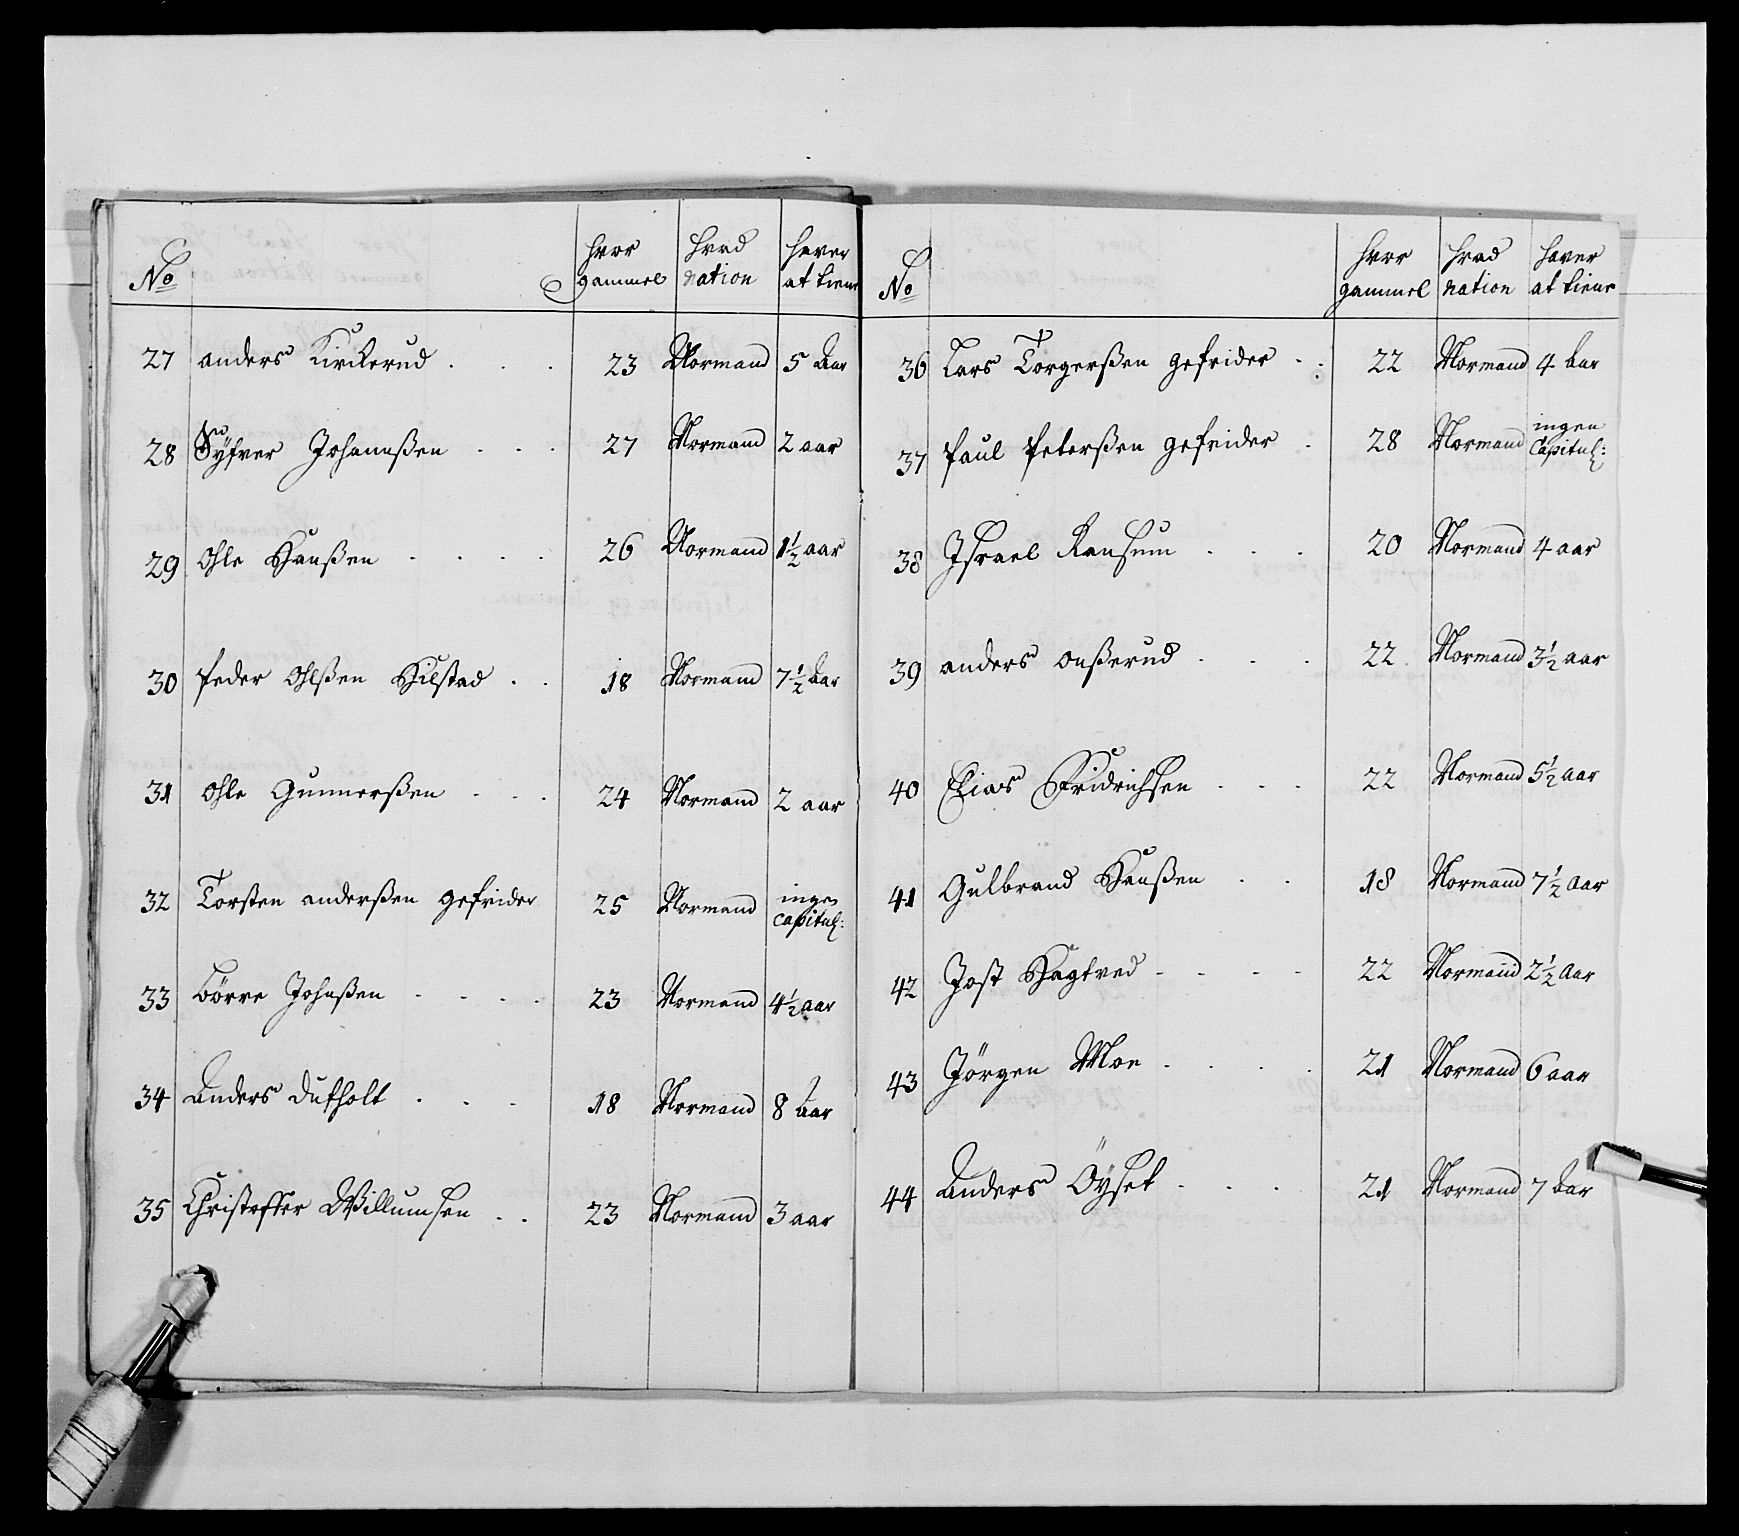 No hvor gammel hvad nation haver at tiene
27 anders Kirckerud . . . 23 Normand 5 Aar
28 Syfver Johannßen . . . 27 Normand 2 aar
29 ohle Hanßen . . . . 26 Normand 1½ aar
30 Peder ohlßen Hilstad . . 18 Normand 7½ Aar
31 ohle Gunnerßen . . . 24 Normand 2 aar
32 Torsten anderßen gefrider 25 Normand ingen Capitul:
33 Börre Johnßen . . . . 23 Normand 4½ aar
34 Anders dufholt . . . 18 Normand 8 Aar
35 Christoffer Willumsen . . 23 Normand 3 aar
No hvor gammel hvad nation haver at tiene
36 Lars Torgerßen gefrider . . 22 Normand 4 Aar
37 Paul Peterßen gefrider . 28 Normand ingen Capitul:
38 Israel Ransum . . . 20 Normand 4 aar
39 anders onßerud . . . 22 Normand 3½ aar
40 Elias Fridrichsen . . . 22 Normand 5½ aar
41 Gulbrand Hanßen . . 18 Normand 7½ Aar
42 Jost Hagtved - - - - 22 Normand 2½ Aar
43 Jörgen Moe . . . . 21 Normand 6 aar
44 Anders Öyset . . . 21 Normand 7 Aar